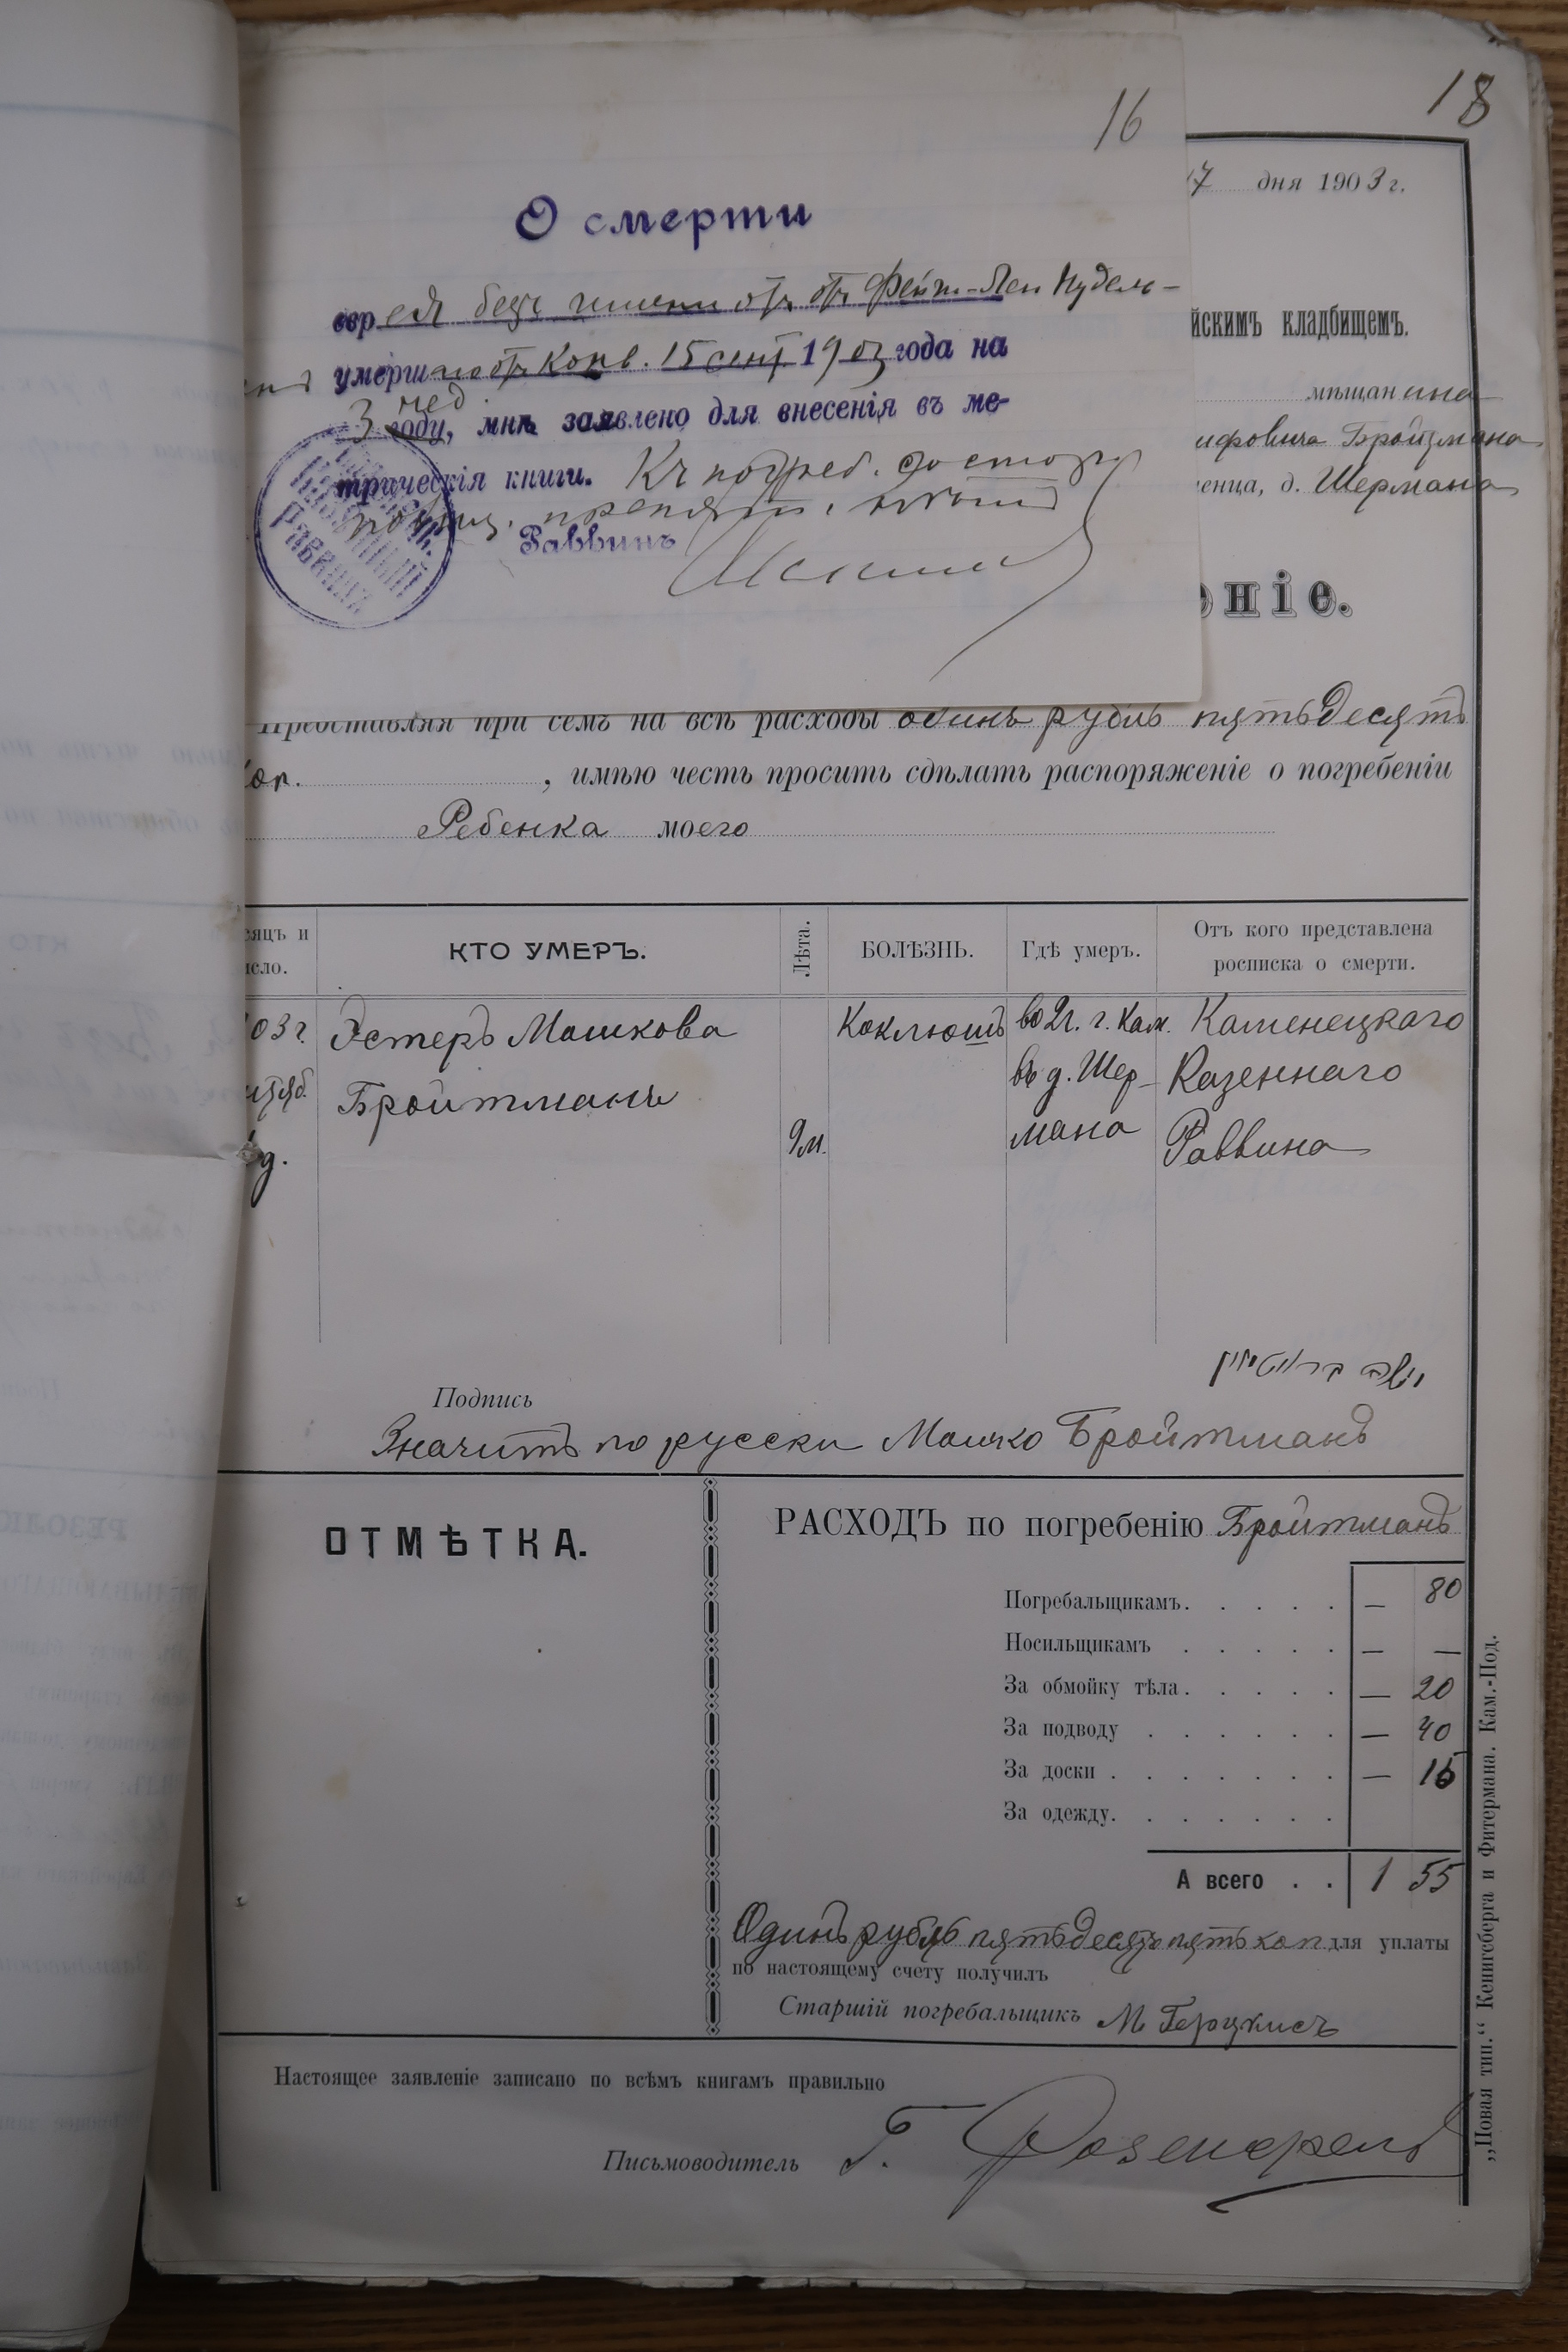 18
16
17 дня 1903 г.
О смерти
еврея безъ имени отъ Фейги-Леи Нудель-
умершаго отъ конв. 15 сент. 1903 года на
3 нед. году, мнѣ заявлено для внесенія въ ме-
трическія книги. Къ погреб. со стороны
препят. нѣтъ
Раввинъ
йскимъ кладбищемъ.
мѣщанина
ифовича Бройтмана
енца, д. Шермана
ніе.
Представляя при семъ на всѣ расходы одинъ рубль пятьдесятъ
коп. , имѣю честь просить сдѣлать распоряженіе о погребеніи
Ребенка моего
сяцъ и
исло.
КТО УМЕРЪ.
Лѣта.
БОЛѢЗНЬ.
Гдѣ умеръ.
Отъ кого представлена
росписка о смерти.
03 г. Эстеръ Машкова Коклюшъ во 2 г. г. Кам. Каменецкаго
Бройтманъ въ д. Шер- Казеннаго
9 м. мана Раввина
Подпись
Значитъ по русски Машко Бройтманъ
ОТМѢТКА.
РАСХОДЪ по погребенію Бройтманъ
Погребальщикамъ. — 80
Носильщикамъ — —
За обмойку тѣла. — 20
За подводу — 40
За доски — 15
За одежду.
А всего 1 55
Одинъ рубль пятьдесятъ пять коп для уплаты
по настоящему счету получилъ
Старшій погребальщикъ М
Настоящее заявленіе записано по всѣмъ книгамъ правильно
Письмоводитель Г. Розенфельд
„Новая тип.“ Кенигсберга и Фитермана. Кам.-Под.